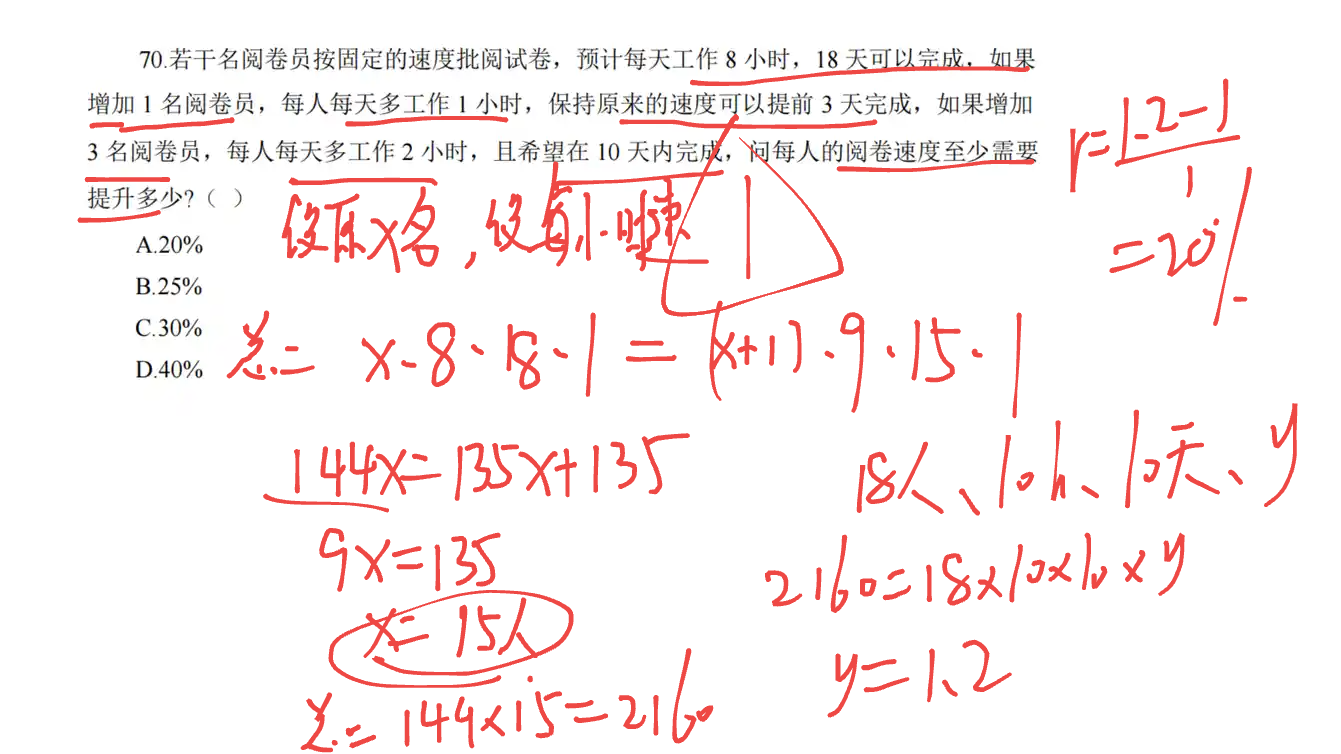 70.若干名阅卷员按固定的速度批阅试卷，预计每天工作 8 小时，18 天可以完成，如果
增加 1 名阅卷员，每人每天多工作 1 小时，保持原来的速度可以提前 3 天完成，如果增加
3 名阅卷员，每人每天多工作 2 小时，且希望在 10 天内完成，问每人的阅卷速度至少需要
提升多少?（ ）
A.20%
B.25%
C.30%
D.40%
设原x名，设每小时速 1
总=x·8·18·1=(x+1)·9·15·1
144x=135x+135
9x=135
x=15人
总=144×15=2160
18人、10h、10天、y
2160=18×10×10×y
y=1.2
r=1.2-1
1
=20%